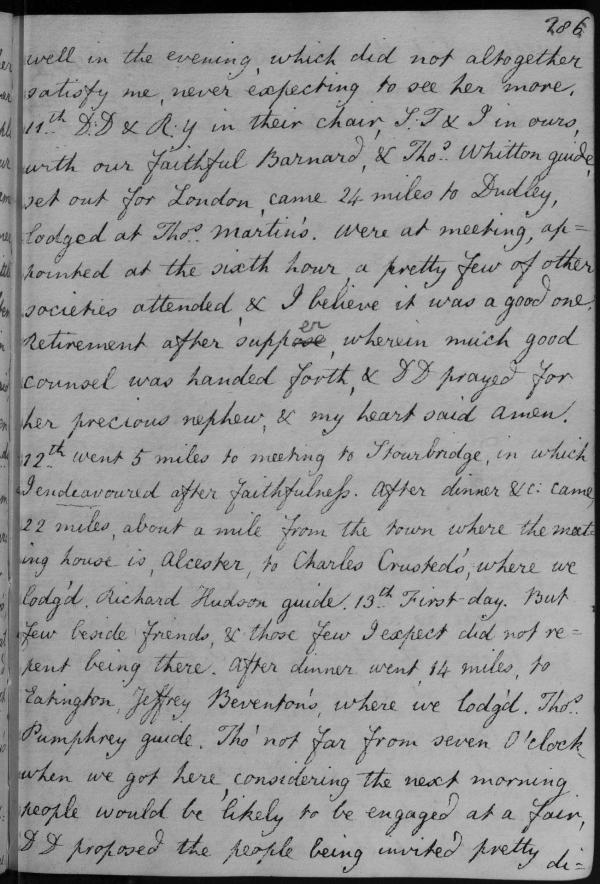 286
well in the evening, which did not altogether
satisfy me, never expecting to see her more.
11th D:D & R:Y in their chair, S:T & I in ours,
with our faithful Barnard, & Thos. Whitton guide,
set out for London, came 24 miles to Dudley,
lodged at Thos. Martin's. Were at meeting, ap=
pointed at the sixth hour a pretty few of other
societies attended, & I believe it was a good one.
Retirement after supper, wherein much good
counsel was handed forth, & DD prayed for
her precious nephew, & my heart said amen.
12th went 5 miles to meeting to Stourbridge, in which
I endeavoured after faithfulness. After dinner &c: came
22 miles, about a mile from the town where the meet=
ing house is, Alcester, to Charles Crusted's, where we
lodg'd. Richard Hudson guide. 13th First-day. But
few beside friends, & those few I expect did not re=
pent being there. After dinner went 14 miles, to
Eatington, Jeffrey Beventon's, where we lodg'd. Thos.
Pumphrey guide. Tho' not far from seven O'clock
when we got here, considering the next morning
people would be likely to be engaged at a fair,
DD proposed the people being invited pretty di=